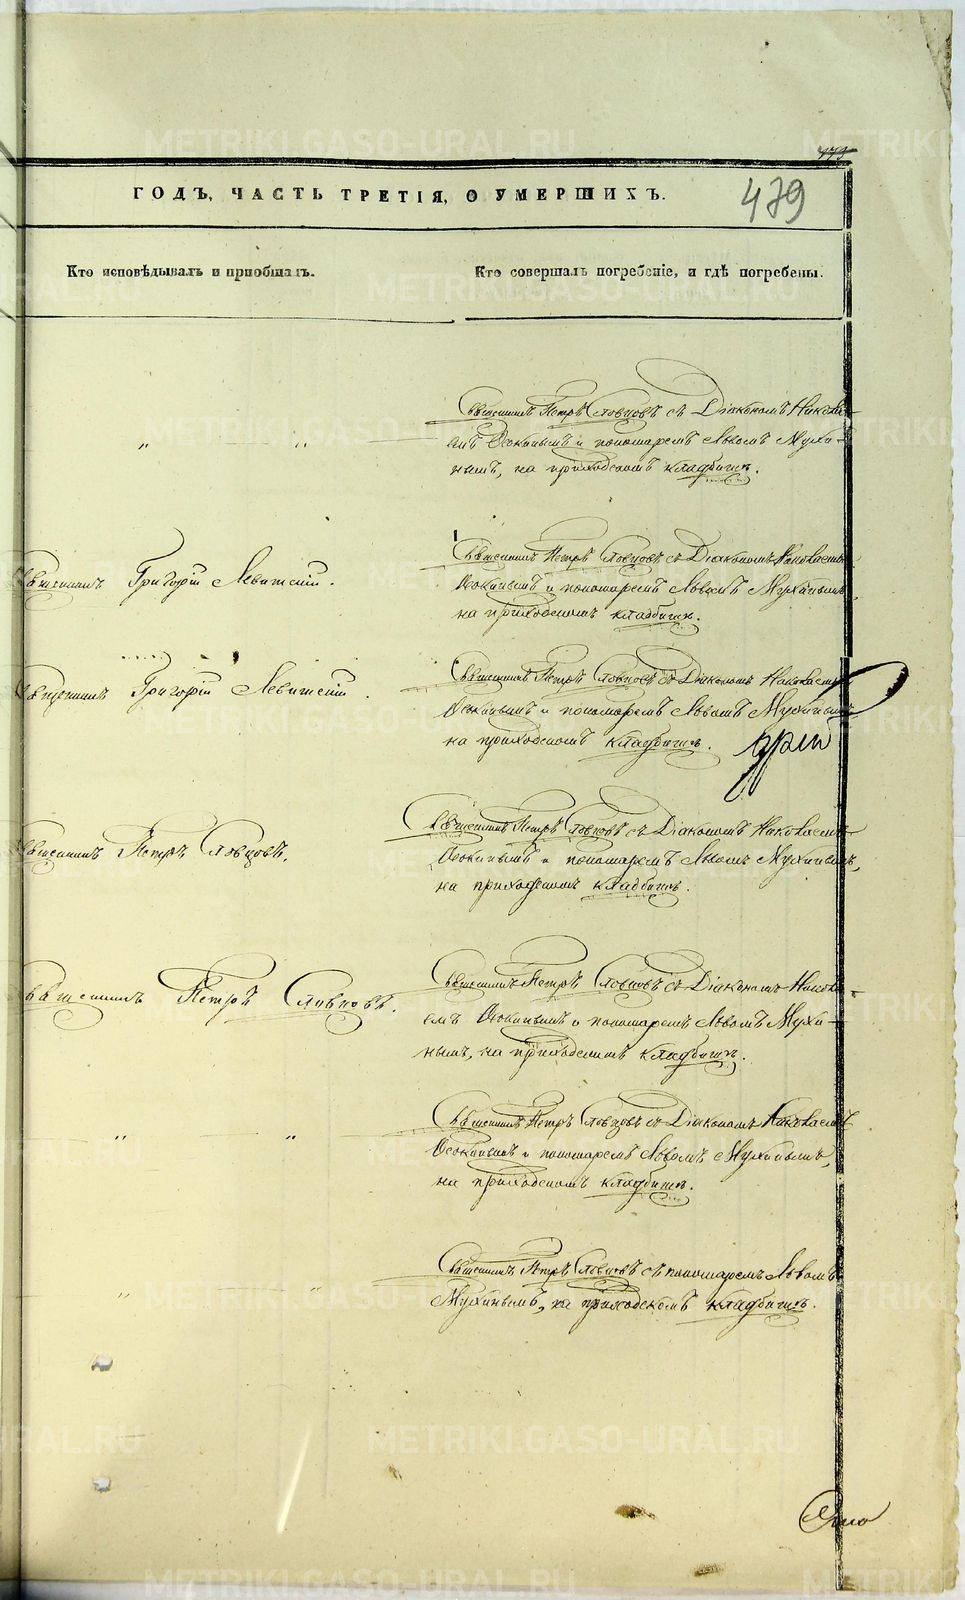 479
ГОДЪ, ЧАСТЬ ТРЕТІЯ, О УМЕРШИХЪ.
479
Кто исповѣдывалъ и пріобщалъ.
Кто совершалъ погребеніе, и гдѣ погребены.
Священникъ Петръ Словцовъ съ Діакономъ Никола-
емъ Осокинымъ и пономаремъ Львомъ Мухи-
нымъ, на приходскомъ кладбищѣ.
„ „
Священникъ Петръ Словцовъ съ Діакономъ Николаемъ
Священникъ Григорій Левитскій.
Осокинымъ и пономаремъ Львомъ Мухинымъ,
на приходскомъ кладбищѣ.
Священникъ Петръ Словцовъ съ Діакономъ Николаемъ
Священникъ Григорій Левитскій.
Осокинымъ и пономаремъ Львомъ Мухинымъ
на приходскомъ кладбищѣ.
Священникъ Петръ Словцовъ съ Діакономъ Николаемъ
Священникъ Петръ Словцовъ.
Осокинымъ и пономаремъ Львомъ Мухинымъ,
на приходскомъ кладбищѣ.
Священникъ Петръ Словцовъ съ Діакономъ Никола-
Священникъ Петръ Словцовъ.
емъ Осокинымъ и пономаремъ Львомъ Мухи-
нымъ, на приходскомъ кладбищѣ.
Священникъ Петръ Словцовъ съ Діакономъ Николаемъ
„ „
Осокинымъ и пономаремъ Львомъ Мухинымъ,
на приходскомъ кладбищѣ.
Священникъ Петръ Словцовъ съ пономаремъ Львомъ
„ „
Мухинымъ, на приходскомъ кладбищѣ.
METRIKI.GASO-URAL.RU